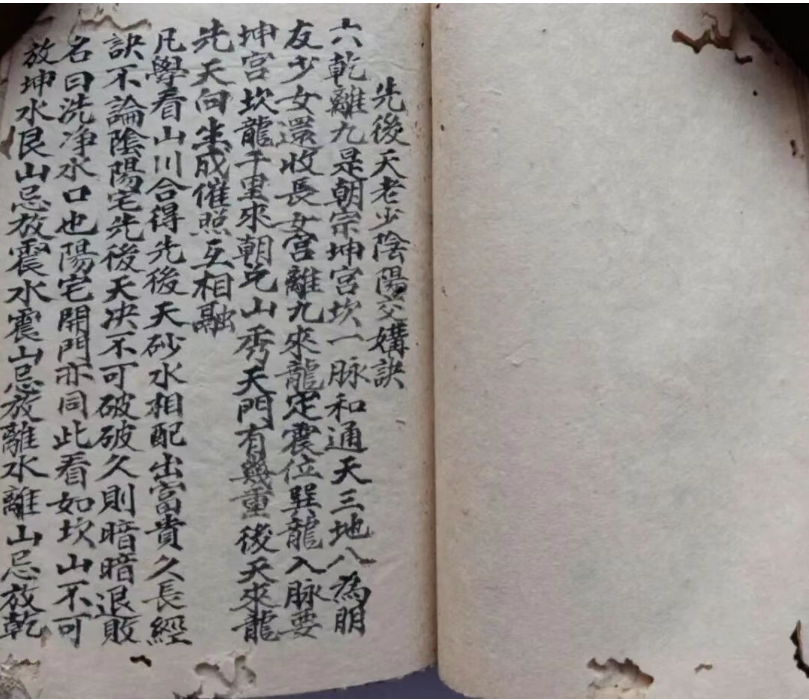 先後天老少陰陽交媾訣
六乾離九是朝宗坤宮坎一脉和通天三地八為朋
友少女還收長女宮離九來龍定震位巽龍入脉要
坤宮坎龍千里來朝兌山秀天門有幾重後天來龍
先天向生成催照互相融
凡學看山川合得先後天砂水相配出富貴久長經
訣不論陰陽宅先後天决不可破破久則暗暗退敗
名曰洗净水口也陽宅開門亦同此看如坎山不可
放坤水艮山忌放震水震山忌放離水離山忌放乾